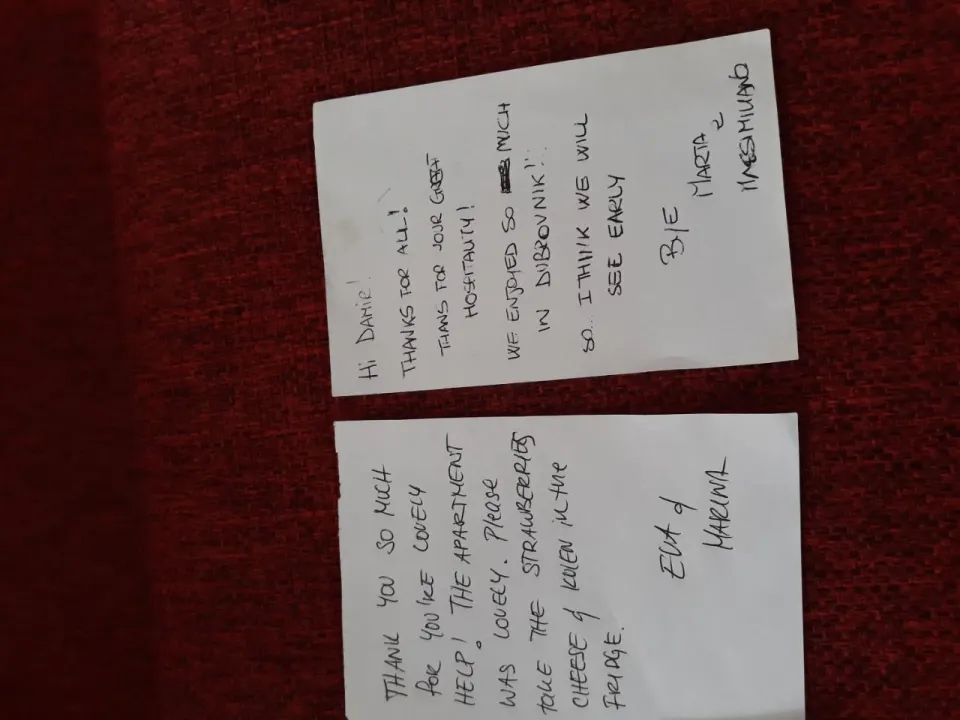 Hi DAMIR!
THANKS FOR ALL!
THANS FOR JOUR GREAT
HOSPITALITY!
WE ENJOYED SO MUCH
IN DUBROVNIK!
SO... I THINK WE WILL
SEE EARLY
BYE
MARTA
MASSIMILIANO
THANK YOU SO MUCH
for YOU'RE LOVELY
HELP! THE APARTMENT
WAS LOVELY. Please
take THE STRAWBERRIES
CHEESE & KULEN in the
FRIDGE.
EVA &
MARINA